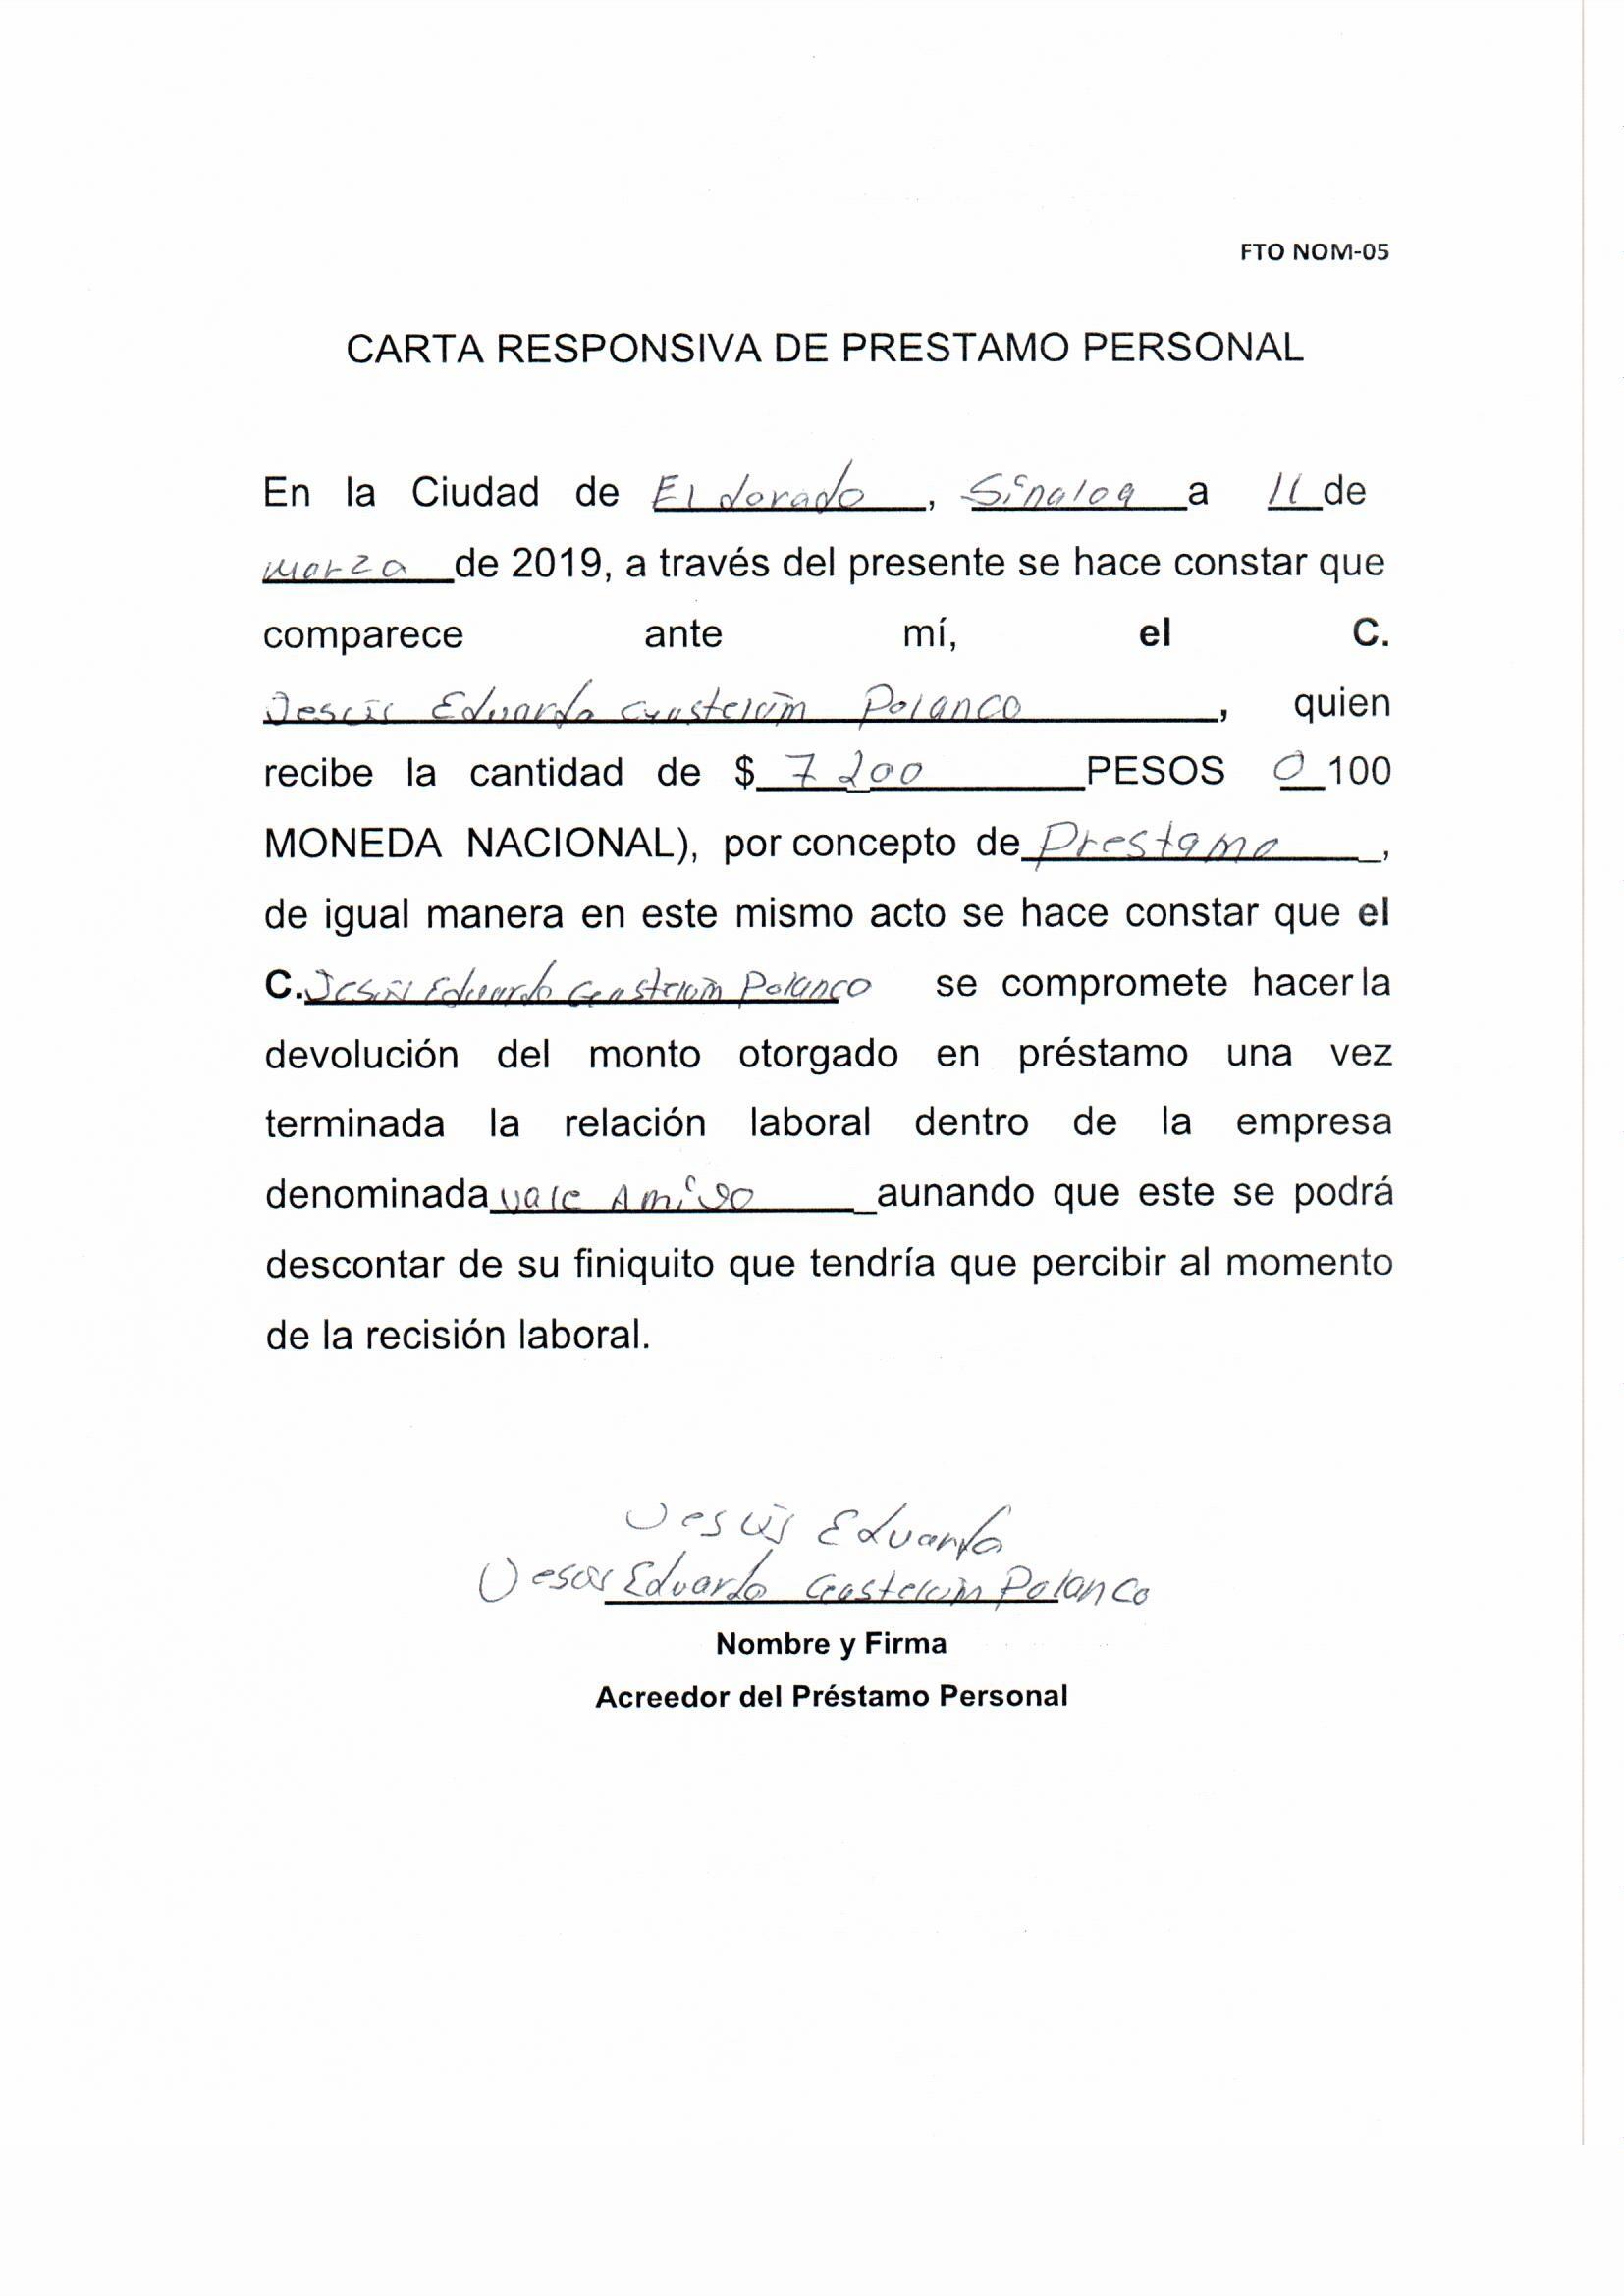 FTO NOM-05
CARTA RESPONSIVA DE PRESTAMO PERSONAL
En la Ciudad de El dorado, Sinaloa a 11 de
marzo de 2019, a través del presente se hace constar que
comparece ante mí, el C.
Jesús Eduardo Gastelúm Polanco, quien
recibe la cantidad de $ 7200 PESOS 0 100
MONEDA NACIONAL), por concepto de Prestamo,
de igual manera en este mismo acto se hace constar que el
C. Jesús Eduardo Gastelúm Polanco se compromete hacer la
devolución del monto otorgado en préstamo una vez
terminada la relación laboral dentro de la empresa
denominada vale Amigo aunando que este se podrá
descontar de su finiquito que tendría que percibir al momento
de la recisión laboral.
Jesús Eduardo
Jesús Eduardo Gastelúm Polanco
Nombre y Firma
Acreedor del Préstamo Personal